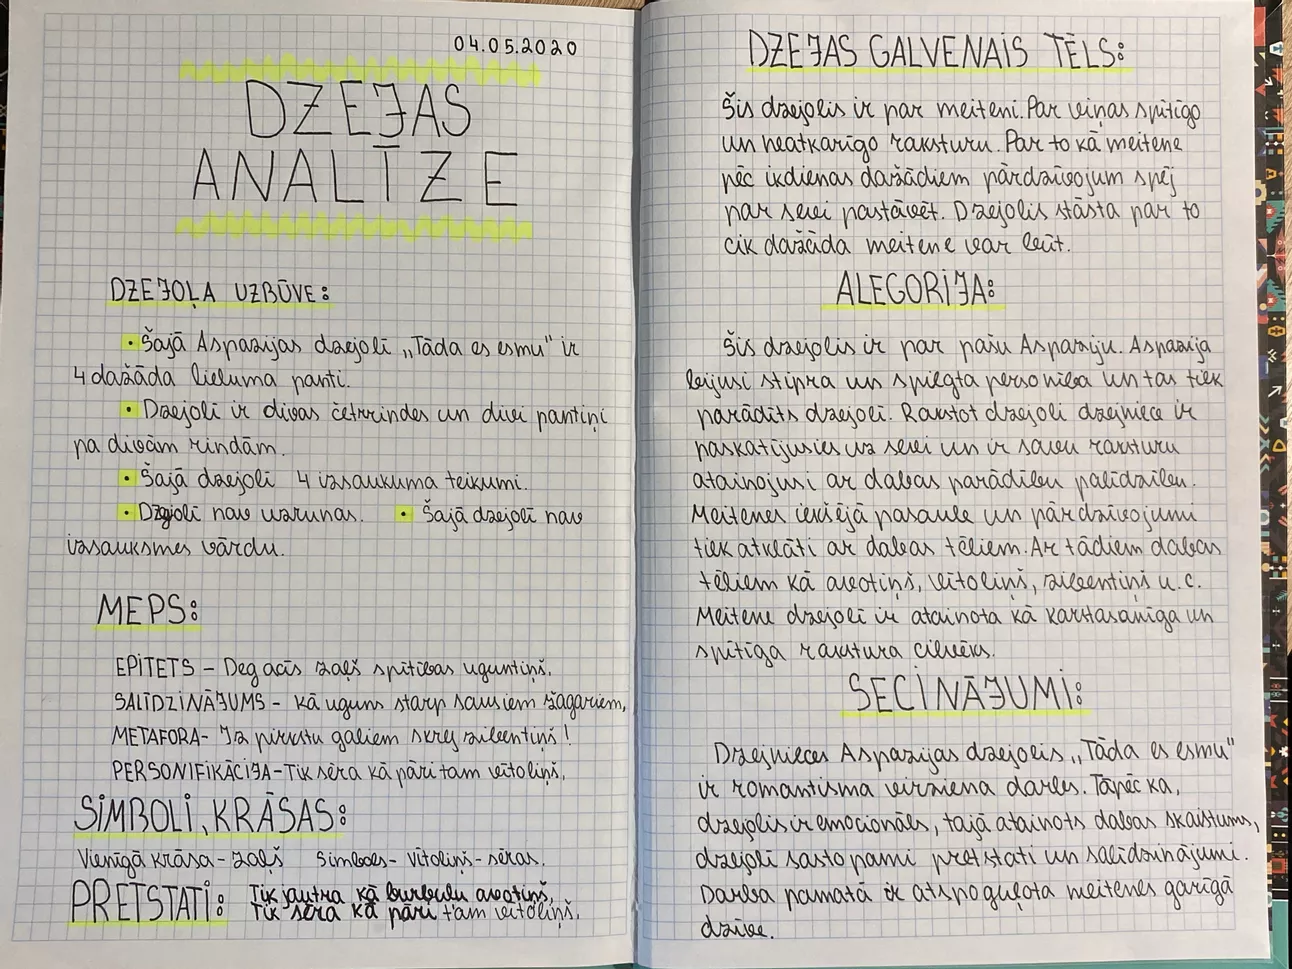 04.05.2020
DZEJAS
ANALĪZE
DZEJOĻA UZBŪVE:
• Šajā Aspazijas dzejolī „Tāda es esmu" ir
4 dažāda lieluma panti.
• Dzejolī ir divas četrrindes un divi pantiņi
pa divām rindām.
• Šajā dzejolī 4 izsaukuma teikumi.
• Dzejolī nav uzrunas. • Šajā dzejolī nav
izsauksmes vārdu.
MEPS:
EPITETS – Deg acīs zaļš spītības uguntiņš.
SALĪDZINĀJUMS – Kā uguns starp sausiem žagariem,
METAFORA – Iz pirkstu galiem skrej zibentiņš!
PERSONIFIKĀCIJA – Tik sēra kā pāri tam vītoliņš,
SIMBOLI, KRĀSAS:
Vienīgā krāsa – zaļš Simbols – vītoliņš – sēras.
PRETSTATI: Tik jautra kā burbuļu avotiņš,
Tik sēra kā pāri tam vītoliņš.
DZEJAS GALVENAIS TĒLS:
Šis dzejolis ir par meiteni. Par viņas spītīgo
un neatkarīgo raksturu. Par to kā meitene
pēc ikdienas dažādiem pārdzīvojum spēj
par sevi pastāvēt. Dzejolis stāsta par to
cik dažāda meitene var būt.
ALEGORIJA:
Šis dzejolis ir par pašu Aspaziju. Aspazija
bijusi stipra un spilgta personība un tas tiek
parādīts dzejolī. Rakstot dzejoli dzejniece ir
paskatījusies uz sevi un ir savu raksturu
atainojusi ar dabas parādību palīdzību.
Meitenes iekšējā pasaule un pārdzīvojumi
tiek atklāti ar dabas tēliem. Ar tādiem dabas
tēliem kā avotiņš, vītoliņš, zibentiņš u.c.
Meitene dzejolī ir atainota kā karstasinīga un
spītīga rakstura cilvēks.
SECINĀJUMI:
Dzejnieces Aspazijas dzejolis „Tāda es esmu"
ir romantisma virziena darbs. Tāpēc ka,
dzejolis ir emocionāls, tajā atainots dabas skaistums,
dzejolī sastopami pretstati un salīdzinājumi.
Darba pamatā ir atspoguļota meitenes garīgā
dzīve.